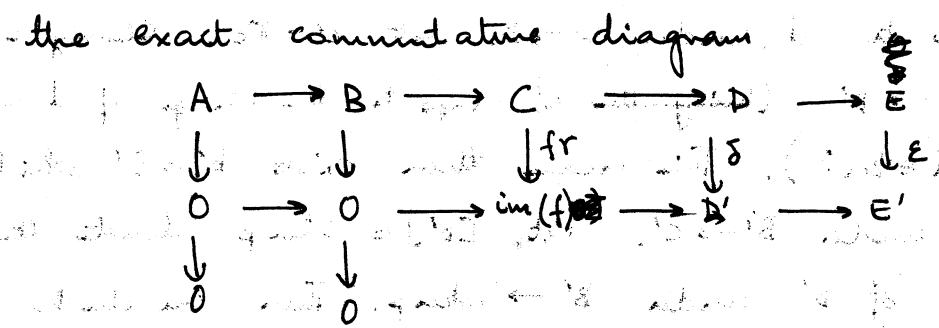 the exact commutative diagram
A → B → C → D → E
↓ ↓ ↓ fr ↓ δ ↓ ε
0 → 0 → im(f) → D' → E'
↓ ↓
0 0